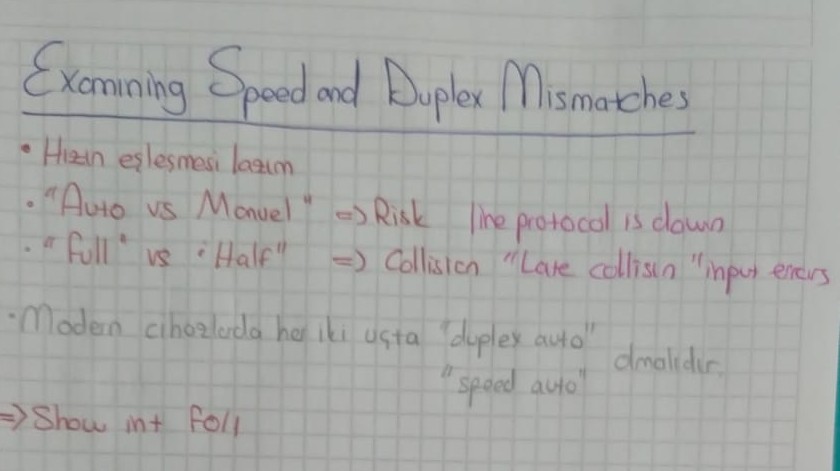 Examining Speed and Duplex Mismatches
• Hızın eşleşmesi lazım
• "Auto vs Manuel" => Risk line protocol is down
• "Full" vs "Half" => Collision "Late collisin" input errors
• Modern cihazlada her iki uçta "duplex auto"
"speed auto" olmalıdır.
=> Show int Fo11